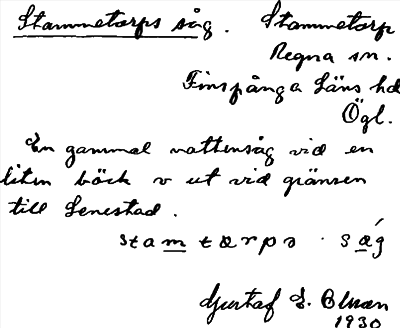 Stammetorps såg. Stammetorp
Regna sn.
Finspånga Läns hd
Ögl.
En gammal vattensåg vid en
liten bäck v ut vid gränsen
till Lenestad.
stamtorps . såg
Gustaf E.
1930